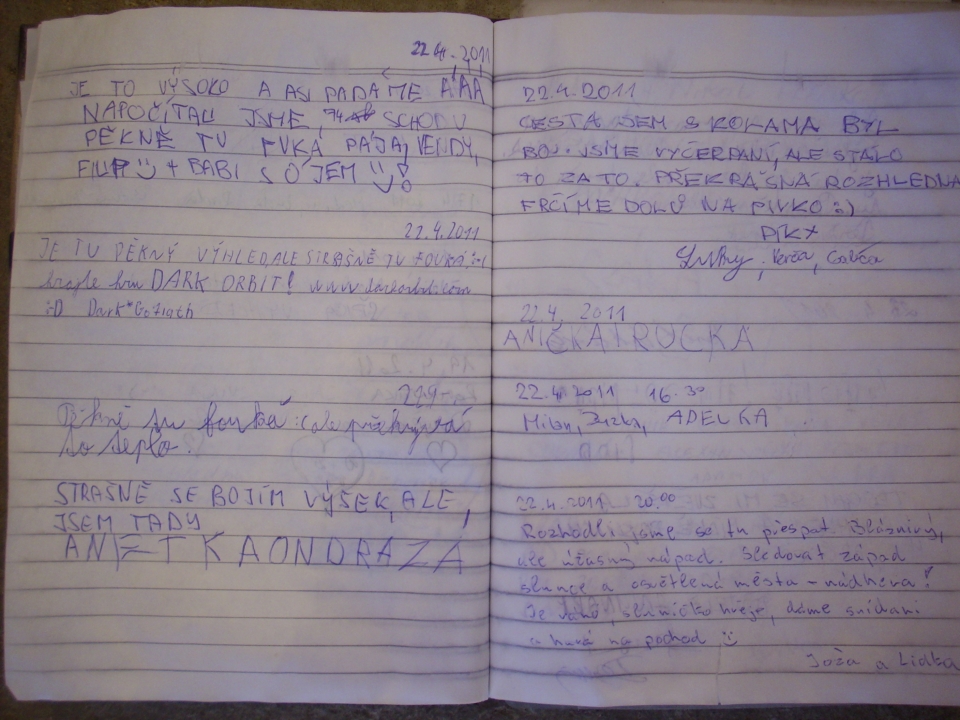 22.4.2011
JE TO VÝSOKO A ASI PADÁME ÁÁÁ
NAPOČÍTALI JSME, 74 SCHODŮ
PĚKNĚ TU FVKÁ PÁJA, VENDY,
FILIP + BABI S ÓJEM
22.4.2011
JE TU PĚKNÝ VÝHLED ALE STRAŠNĚ TU FOUKÁ :-(
hrajte hru DARK ORBIT! www.darkorbit.com
:D Dark*Goliath
22.4.
Pěkně tu fouká :( ale
to teplo.
STRAŠNĚ SE BOJÍM VÝŠEK, ALE,
JSEM TADY
ANET KA ONDRA ZÁ
22.4.2011
CESTA SEM S KOLAMA BYL
BOJ. JSME VYČERPANÍ, ALE STÁLO
TO ZA TO. PŘEKRÁSNÁ ROZHLEDNA
FRČÍME DOLŮ NA PIVKO :)
22.4. 2011
ANIČKA I RUCKA
22.4.2011 16.30
Milan, ADELKA
22.4.2011 20.00
Rozhodli jsme se tu přespat. Bláznivý,
ale úžasný nápad. Sledovat západ
slunce a osvětlená města - nádhera!
Je ráno, sluníčko hřeje, dáme snídani
a hurá na pochod
Joža a Lidka